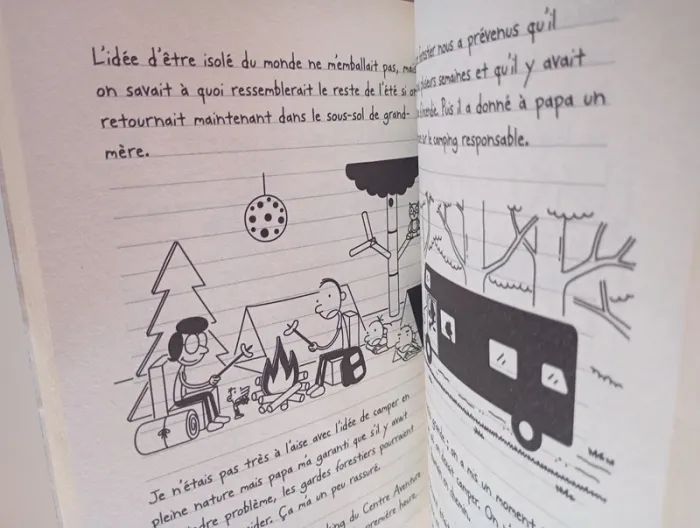 L'idée d'être isolé du monde ne m'emballait pas,
on savait à quoi ressemblerait le reste de l'été si on
retournait maintenant dans le sous-sol de grand-
mère.
Je n'étais pas très à l'aise avec l'idée de camper en
pleine nature mais papa m'a garanti que s'il y avait
problème, les gardes forestiers pourraient
Ça m'a un peu rassuré.
du Centre Aventure
première heure.
nous a prévenus qu'il
semaines et qu'il y avait
Puis il a donné à papa un
sur le camping responsable.
on a mis un moment
camper. On